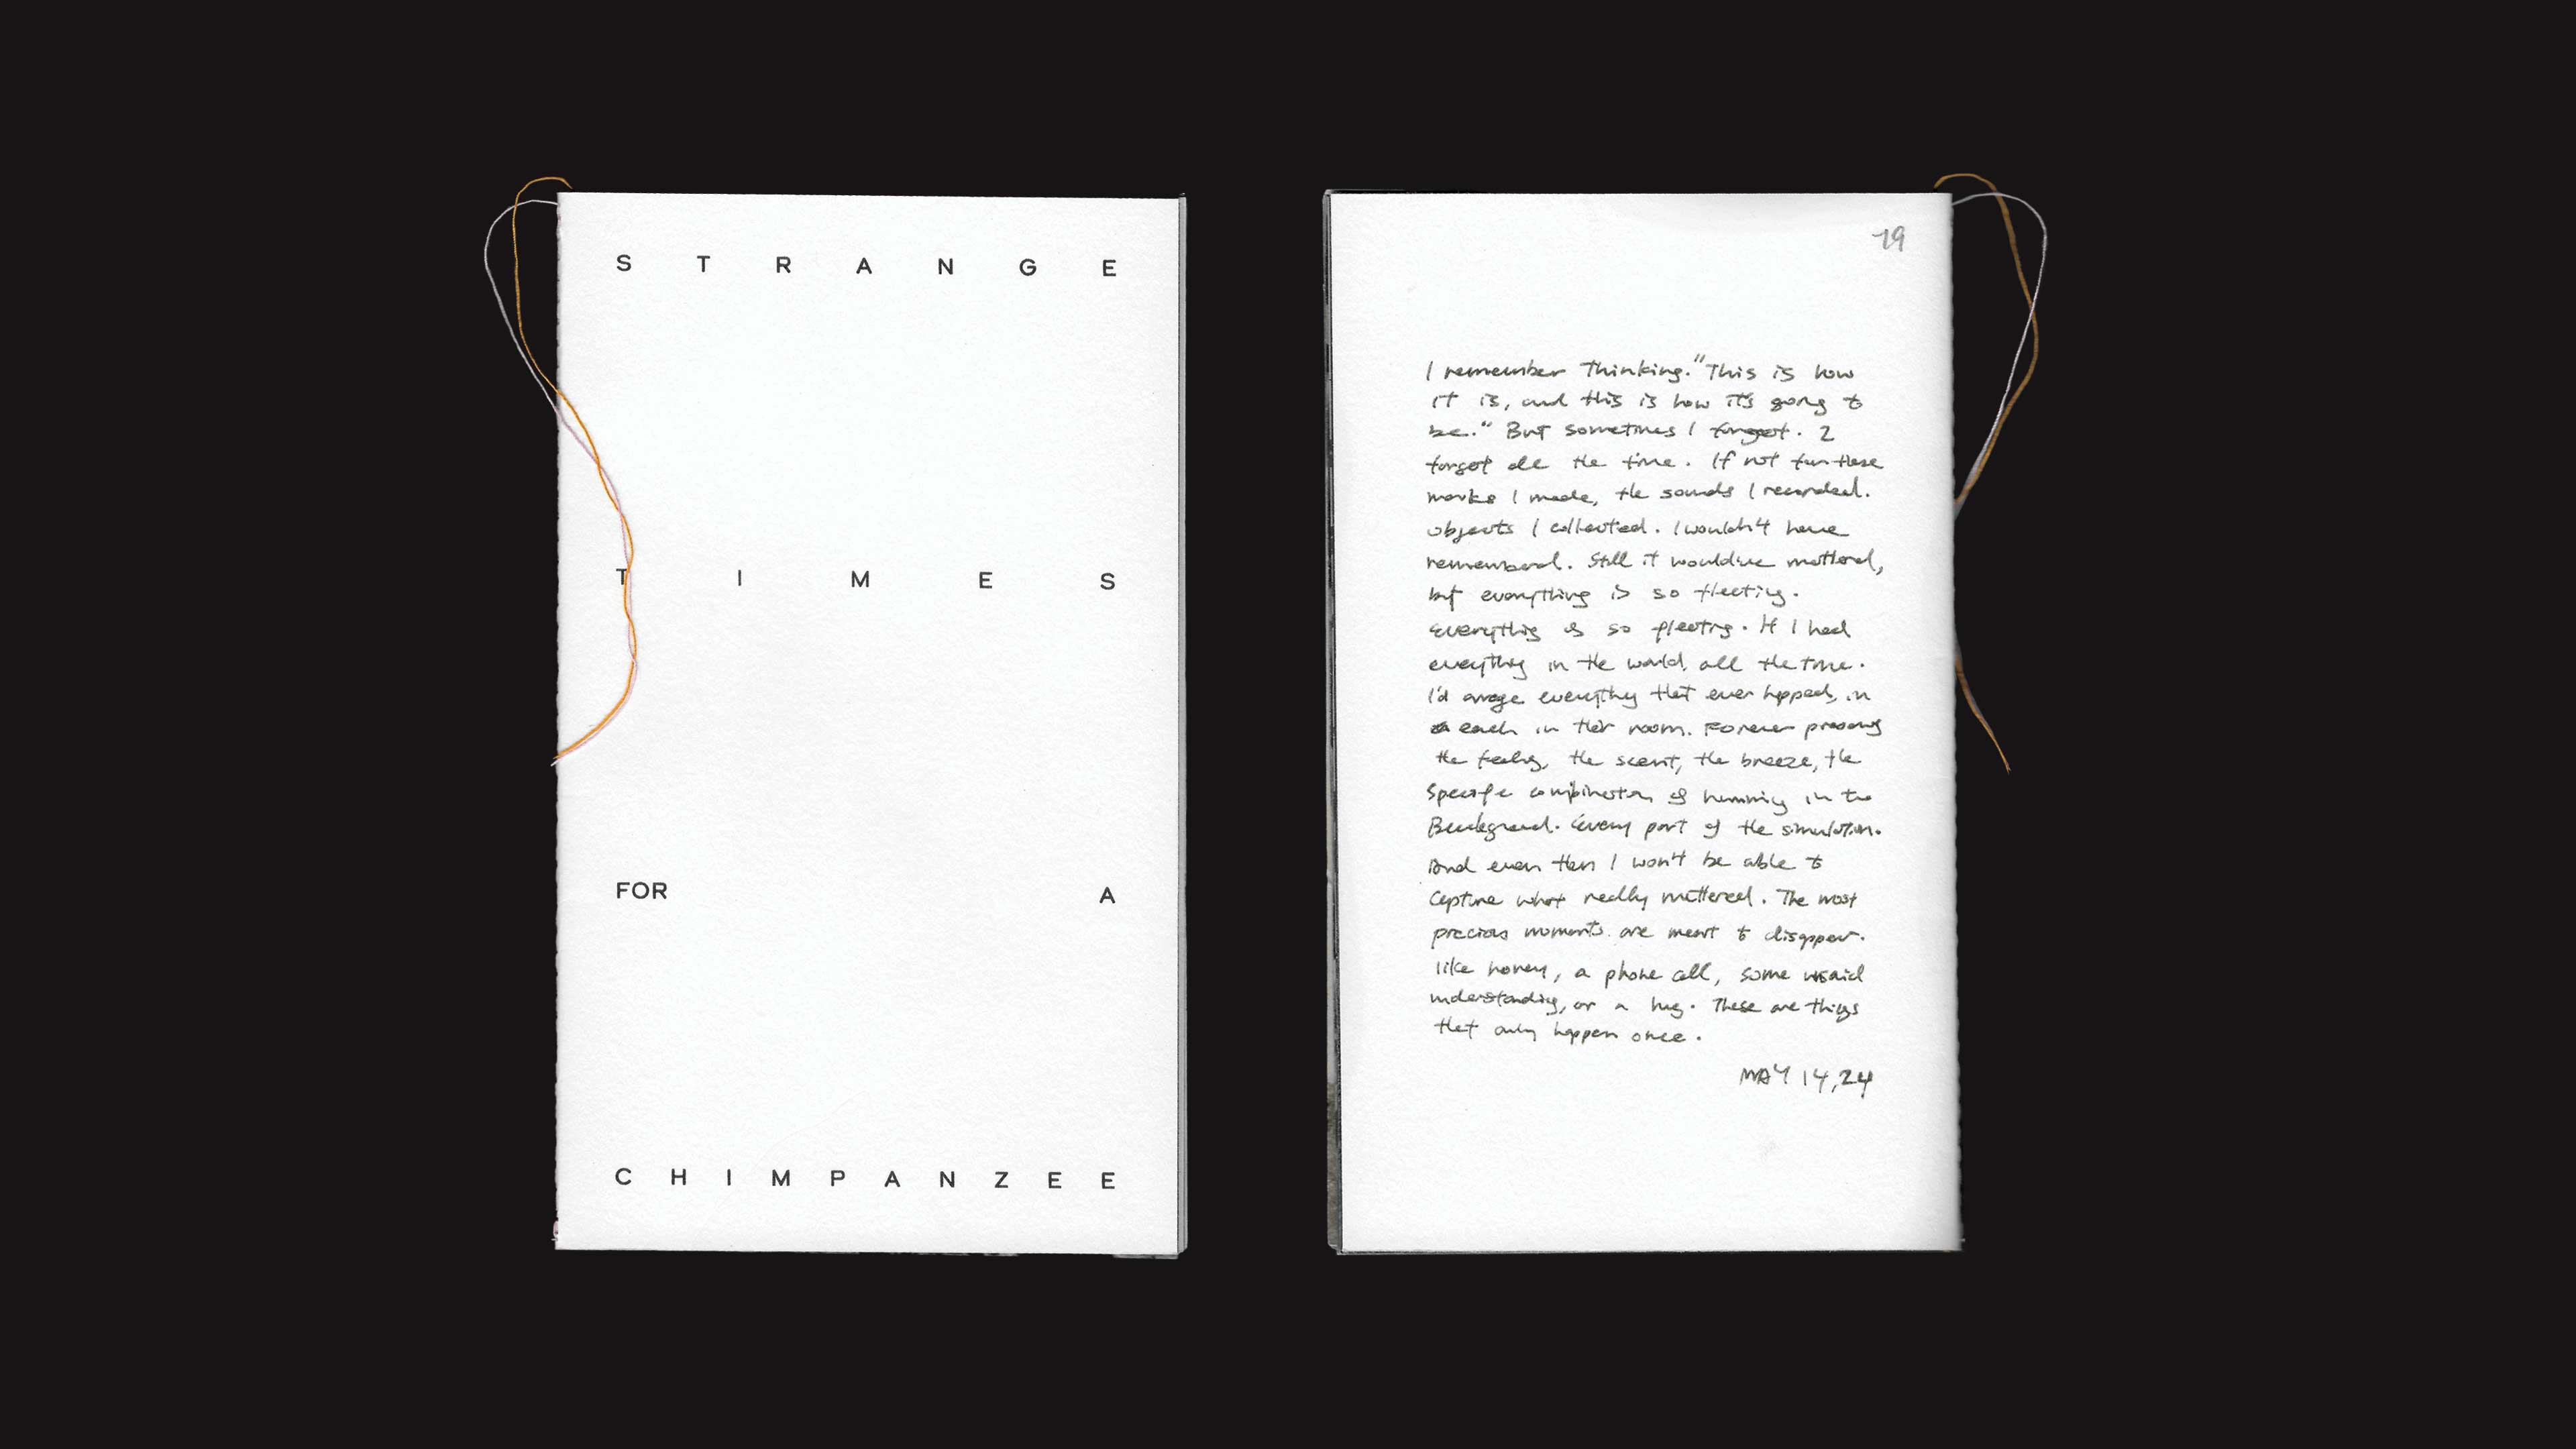 STRANGE
TIMES
FOR A
CHIMPANZEE
19
I remember thinking. "This is how
it is, and this is how it's going to
be." But sometimes I forget. I
forget all the time. If not for these
marks I made, the sounds I recorded.
objects I collected. I wouldn't have
remembered. Still it would've mattered,
but everything is so fleeting.
Everything is so fleeting. If I had
everything in the world, all the time.
I'd arrange everything that ever happened, in
each in their room. Forever preserving
the feeling, the scent, the breeze, the
specific combination of humming in the
Background. Every part of the simulation.
And even then I won't be able to
capture what really mattered. The most
precious moments are meant to disappear.
like honey, a phone call, some unsaid
understanding, or a hug. These are things
that only happen once.
MAY 14, 24